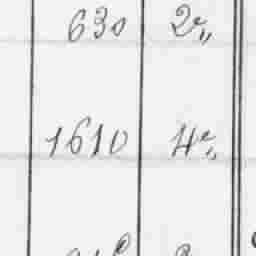 630 2e,,
1610 4e,,